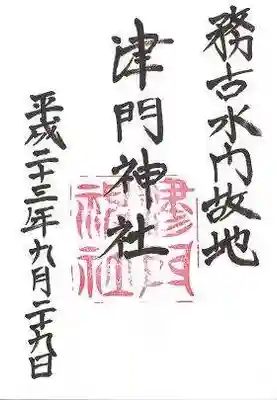 務古水門故地
津門神社
津門神社
平成二十三年九月二十九日